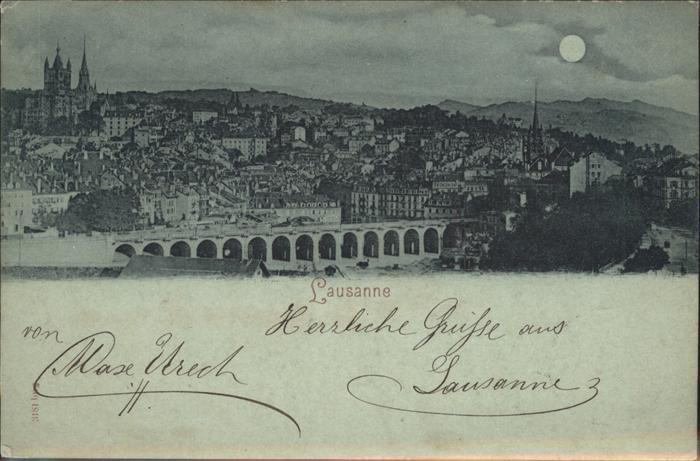 Lausanne
Herzliche Grüsse aus
Lausanne
von
Max Urech